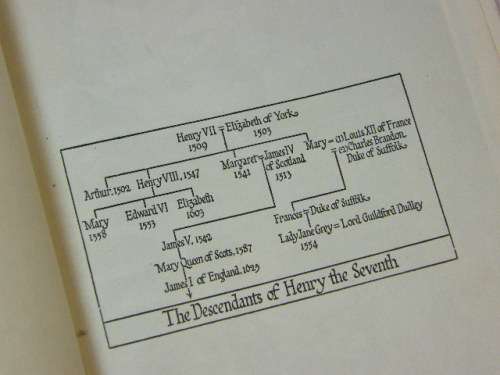 Henry VII = Elizabeth of York
1509 1503
Arthur, 1502 Henry VIII, 1547 Margaret = James IV of Scotland Mary = (1) Louis XII of France
1541 1513 (2) Charles Brandon,
Duke of Suffolk
Mary Edward VI Elizabeth
1558 1553 1603
Frances = Duke of Suffolk
James V, 1542
Lady Jane Grey = Lord Guildford Dudley
1554
Mary Queen of Scots, 1587
James I of England, 1625
The Descendants of Henry the Seventh